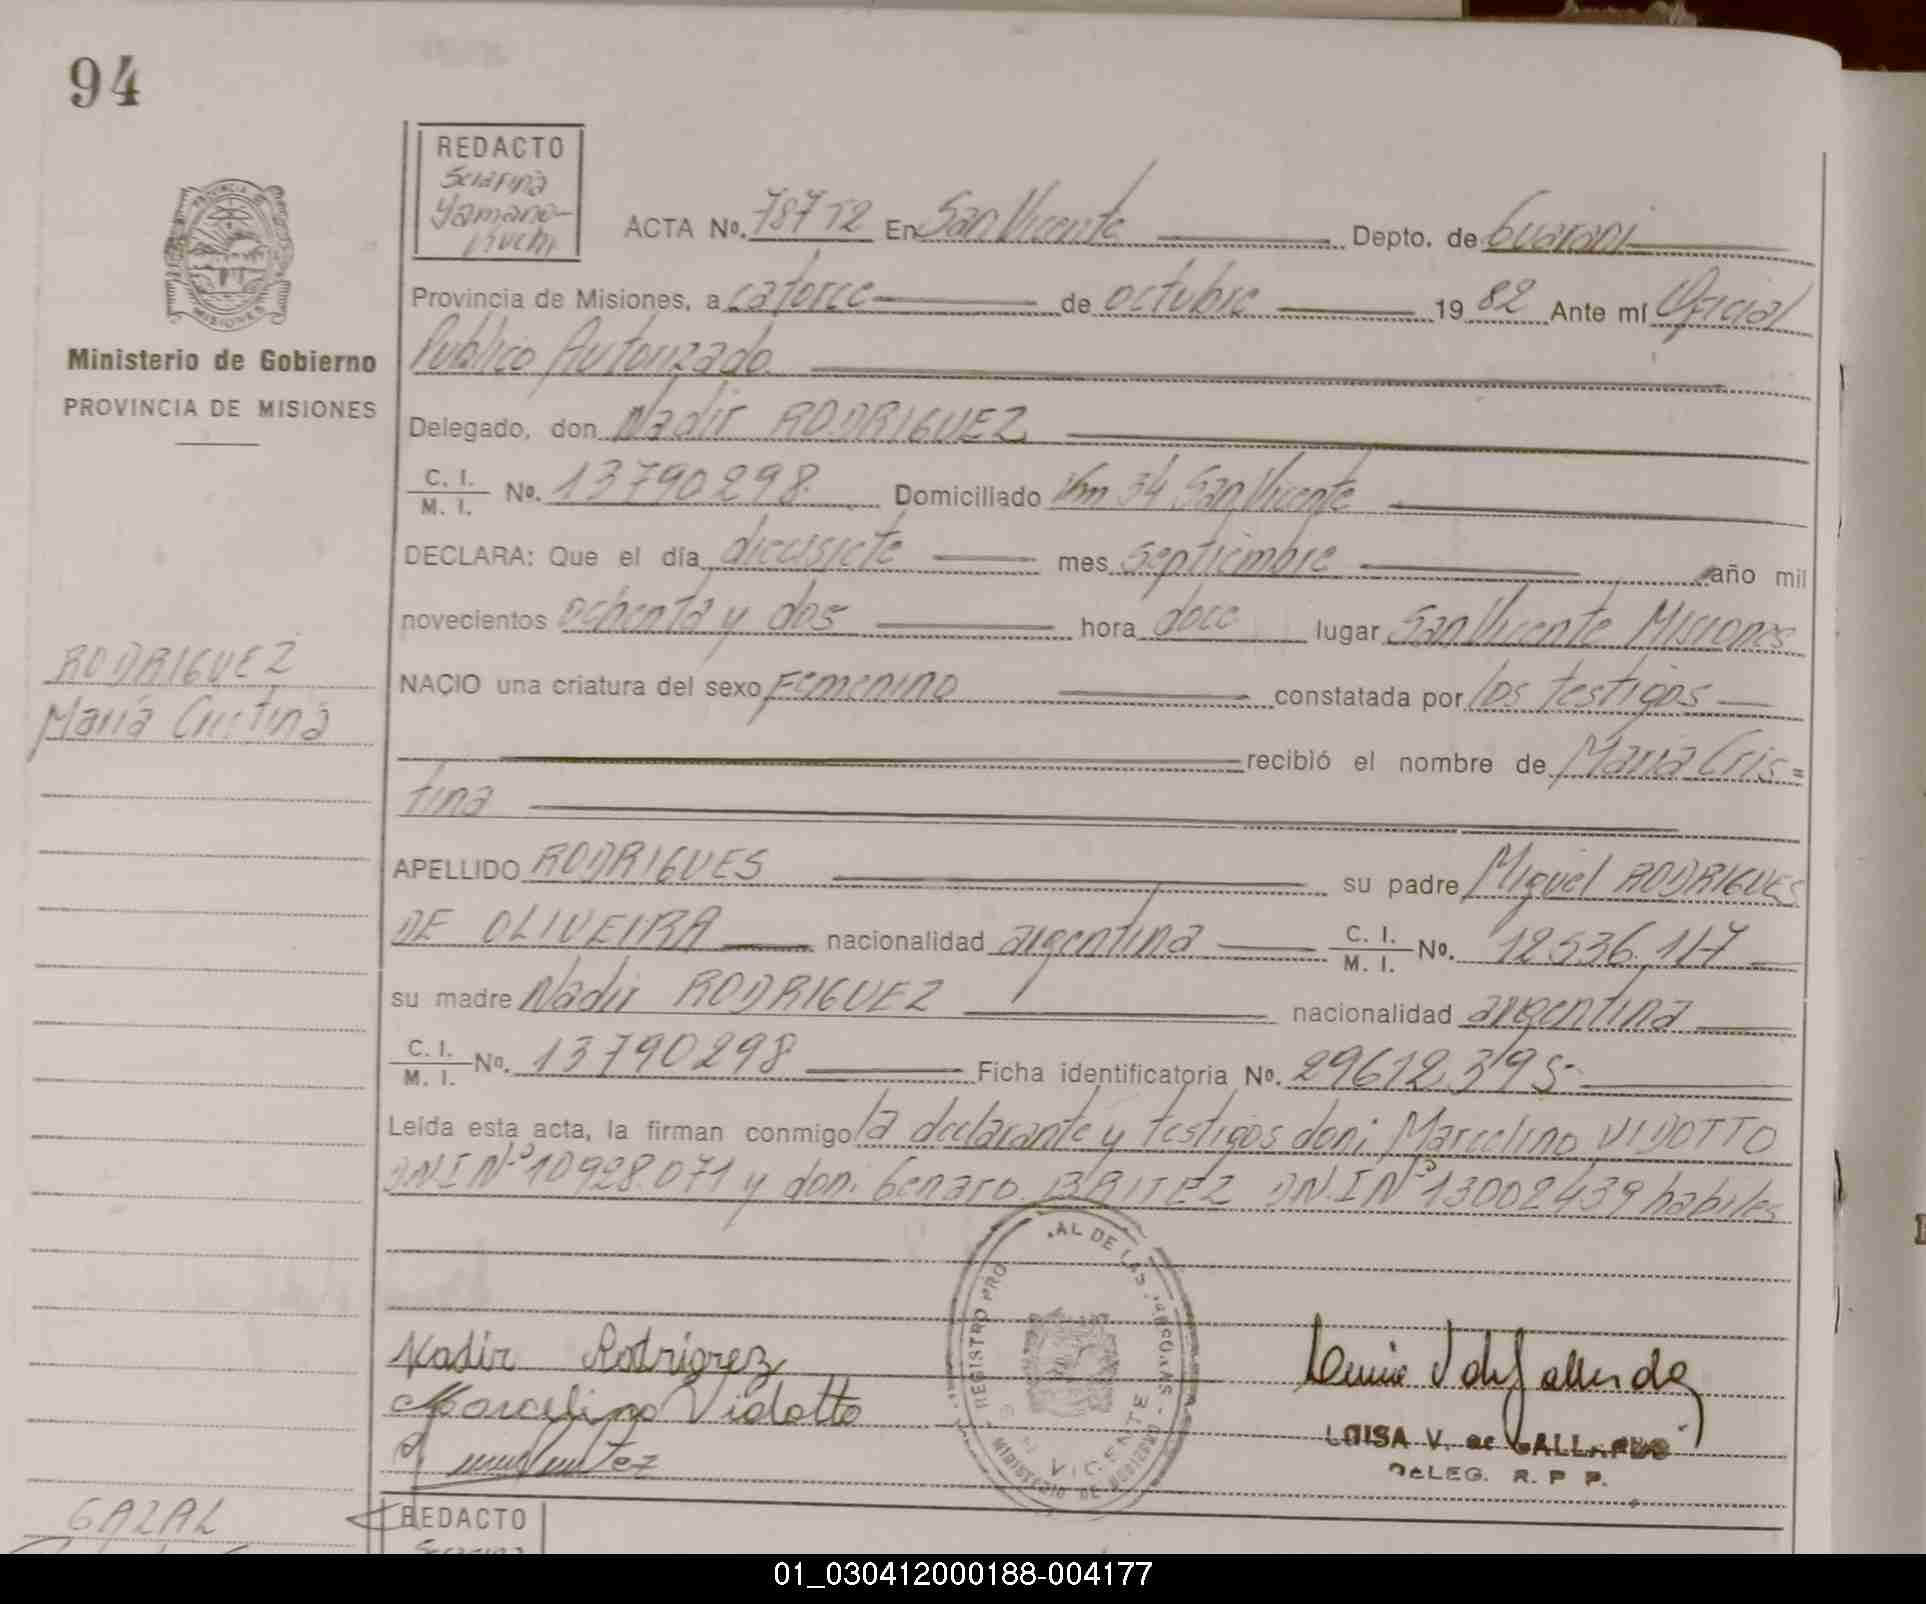 94
REDACTO
Serafina
Yamano-
PROVINCIA DE
MISIONES
Ministerio de Gobierno
PROVINCIA DE MISIONES
ACTA No. 787 T2 En San Vicente Depto. de Guarani
Provincia de Misiones, a catorce de octubre 19 82 Ante mí Oficial
Publico Autorizado
Delegado, don Nadir RODRIGUEZ
C. I. / M. I. No. 13790298. Domiciliado Km 34 San Vicente
DECLARA: Que el día diecisiete mes septiembre año mil
novecientos ochenta y dos hora doce lugar San Vicente Misiones
RODRIGUEZ
María Cristina
NACIO una criatura del sexo femenino constatada por los testigos
recibió el nombre de María Cris=
tina
APELLIDO RODRIGUES su padre Miguel RODRIGUES
DE OLIVEIRA nacionalidad argentina C. I. / M. I. No. 12536.117
su madre Nadir RODRIGUEZ nacionalidad argentina
C. I. / M. I. No. 13790298 Ficha identificatoria No. 29612.395
Leída esta acta, la firman conmigo la declarante y testigos don: Marcelino VIDOTTO
DNI Nº 10928.071 y don: Genaro BRITEZ DN.I Nº 13002439 habiles
REGISTRO PRO AL DE LAS PERSONAS
VICENTE
MINISTERIO DE GOBIERNO
Nadir Rotrigrez
Marcelino Vidotto
LUISA V. de GALLARDO
DELEG. R. P P.
GAZAL
REDACTO
01_030412000188-004177